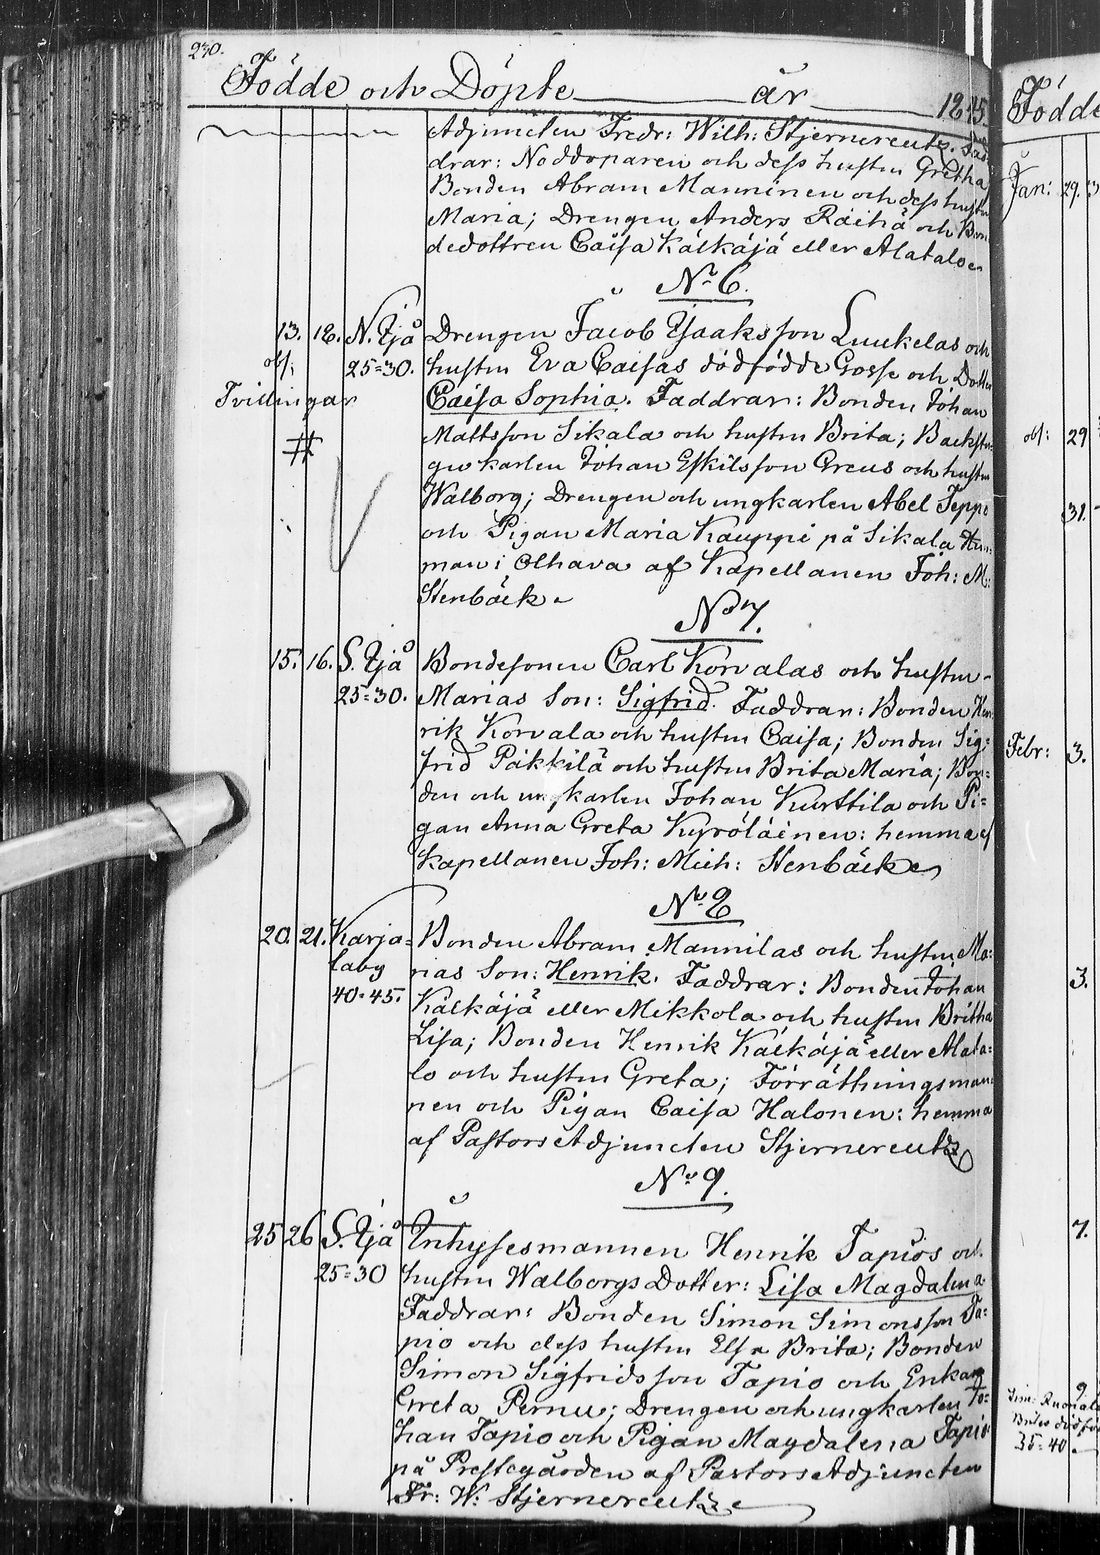 230.
Födde och Döpte år 1845.
Adjuncten Fredr: Wilh: Stjernereutz. Fad-
drar: Noddoparen och dess hustru Gretha
Bonden Abram Manninen och dess hustru
Maria; Drengen Anders Räihä och Bon-
dedottren Caisa Kälkäjä eller Alatalo
No 6.
13. 18. N. Ijå Drengen Jacob Isaaksson Luukelas och
ob: 25=30. hustru Eva Caisas dödfödde Gosse och Dotter
Tvillingar Caisa Sophia. Faddrar: Bonden Johan
# Mattsson Sikala och hustru Brita; Backstu-
gu karlen Johan Eskilsson Greus och hustru
Walborg; Drengen och ungkarlen Abel Teppo
och Pigan Maria Kauppi på Sikala
man i Olhava af Kapellanen Joh: M:
Stenbäck
No 7.
15. 16. S. Ijå Bondesonen Carl Korvalas och hustru
25=30. Marias Son: Sigfrid. Faddrar: Bonden Hen-
rik Korvala och hustru Caisa; Bonden Sig-
frid Päkkilä och hustru Brita Maria; Bon-
den och ungkarlen Johan Kurttila och Pi-
gan Anna Greta Kyröläinen: hemma af
Kapellanen Joh: Mich: Stenbäck
No 8
20. 21. Karja= Bonden Abram Mannilas och hustru Ma-
laby rias Son: Henrik. Faddrar: Bonden Johan
40=45. Kälkäjä eller Mikkola och hustru Britha
Lisa; Bonden Henrik Kälkäjä eller Alata-
lo och hustru Greta; Förrättningsman-
nen och Pigan Caisa Halonen: hemma
af Pastors Adjuncten Stjernereutz
No 9.
25 26 S. Ijå Inhysesmannen Henrik Tapios och
25=30 hustru Walborgs Dotter: Lisa Magdalena
Faddrar: Bonden Simon Simonsson Ta-
pio och dess hustru Elsa Brita; Bonden
Simon Sigfridsson Tapio och Enkan
Greta Pernu; Drengen och ungkarlen Jo-
han Tapio och Pigan Magdalena Tapio
på Prestegården af Pastors Adjuncten
Fr: W: Stjernereutz
Födde
Jan: 29.
ob: 29
31.
Febr: 3.
3.
7.
9.
35=40